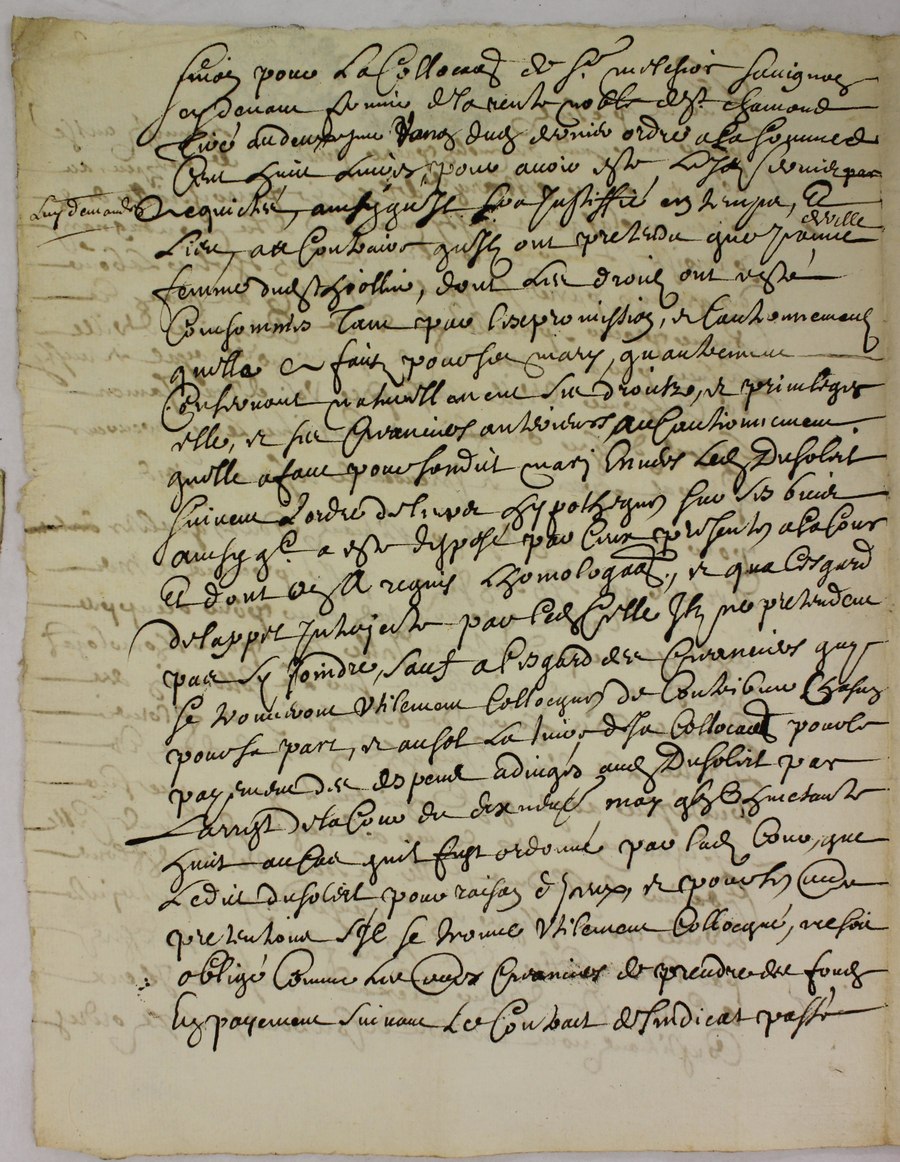 pour la Collocaõn de Sr. melchior
cydevant fermier de la rente noble de St. chamond
au deuxiesme rang dud. dernier ordre a la somme de
Cent huit Livres, pour avoir esté Led. dernier par
Luy demandée
requeste, ainsy qu'il sera Justiffié en temps, Et
Lieu, au Contraire qu'ils ont pretendu que Jeanne
deville
femme dud. St. hiollin, dont Les droits ont resté
Consommés Tant par l'expromission, et Cautionnement
quelle a fait pour son mary, qu'autrement
Conservant naturellement ses droits, et privileges
elle, et ses Creanciers anterieurs au Cautionnement
quelle a fait pour sondit mary Envers Led. Dusoleil
suivant L'ordre de leurs hypotheques sur ses biens
ainsy qe. a esté exposé par Ceux presentés a la Cour
Et dont est requis L'homologaõn., et qua L'esgard
de l'appel Interjecté par Led. Celle Ils ne pretendent
pas S'y Joindre, sauf a l'esgard des Creanciers qui
se trouveront Utilement Collocqués de Contribuer Chascun
pour sa part, et au sol La livre de sa Collocaõn pour le
payement des despens adjugés aud. Dusoleil par
L'arrest de la Cour du dix neufe. may 
huit au Cas qu'il fust ordonné par lad. Cour, que
Ledit dusoleil pour raison d'Iceux, et pour ses autres
pretentions s'il se trouve Utilement Collocqué, ne soit
obligé Comme Les autres Creanciers de prendre des fonds
En payement suivant Le Contract de sindicat passé